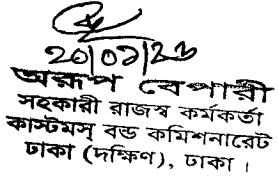 ২০|০১|২৬
অরূপ বেপারী
সহকারী রাজস্ব কর্মকর্তা
কাস্টমস্ বন্ড কমিশনারেট
ঢাকা (দক্ষিণ), ঢাকা।